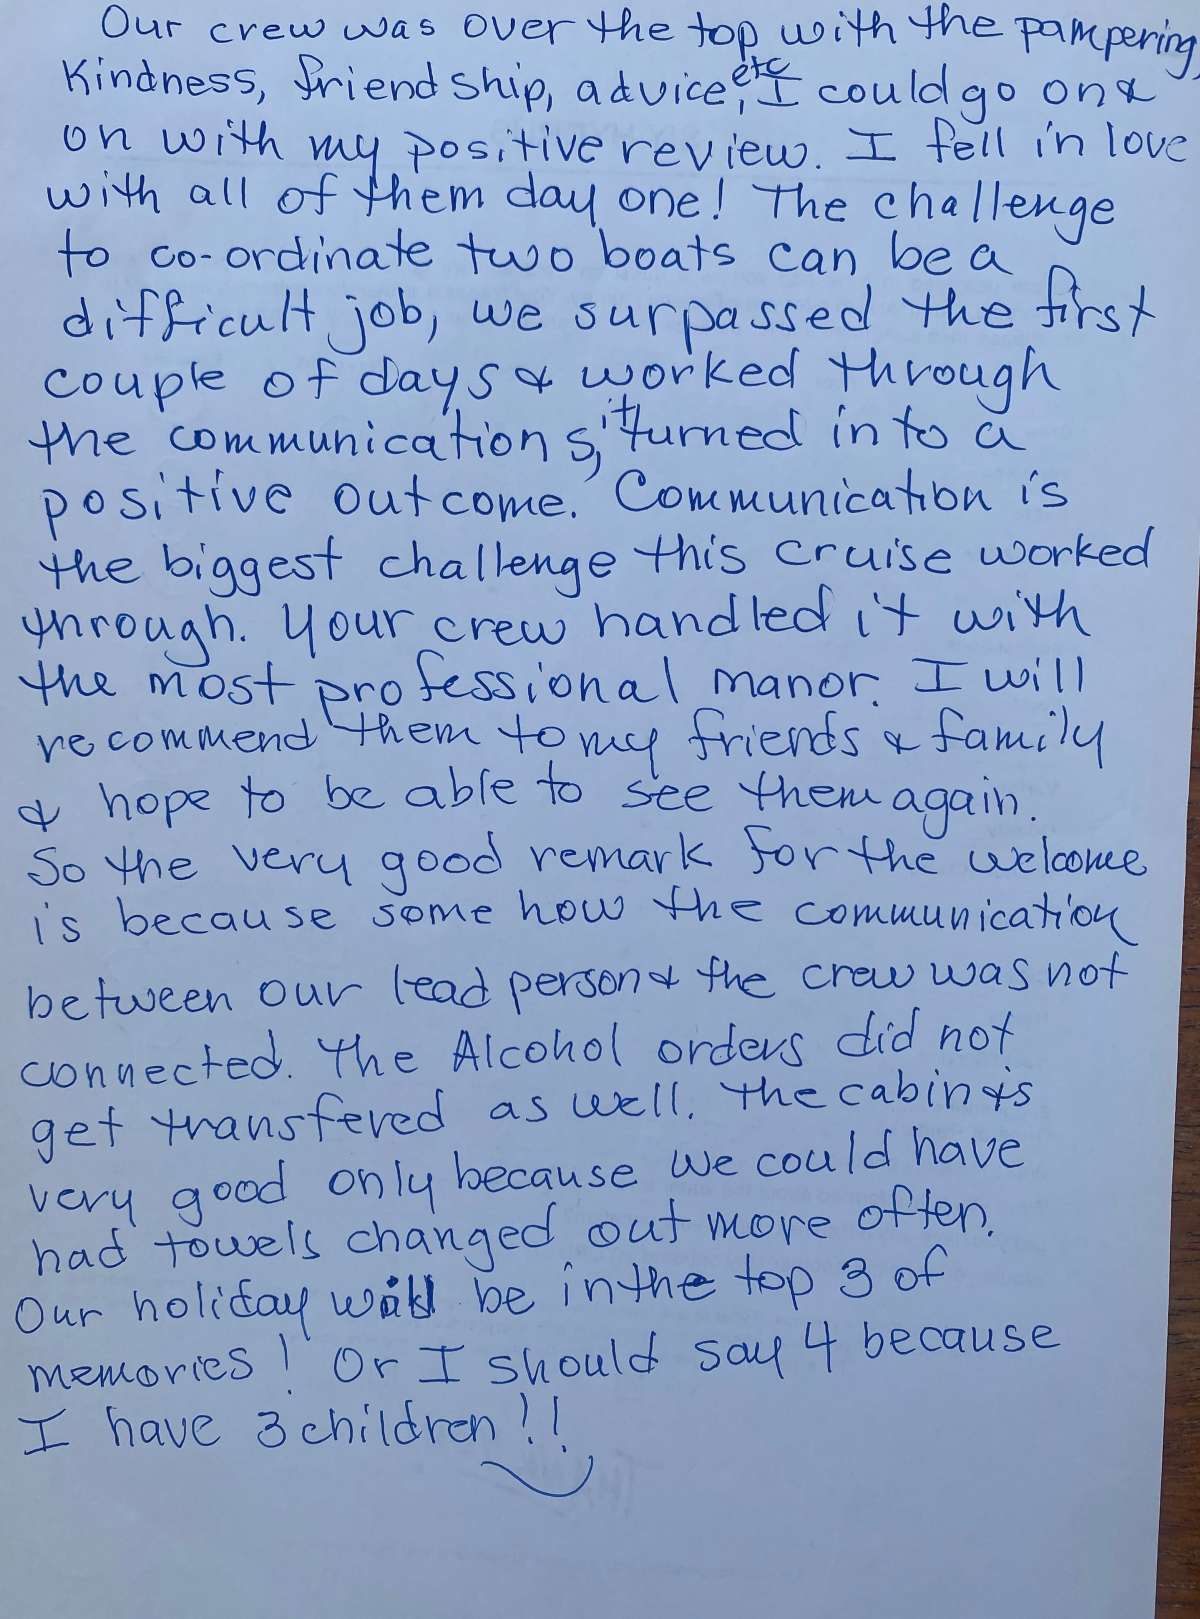 Our crew was over the top with the pampering,
Kindness, friendship, advice, etc, I could go on &
on with my positive review. I fell in love
with all of them day one! The challenge
to co-ordinate two boats can be a
difficult job, we surpassed the first
couple of days & worked through
the communications, it turned into a
positive outcome. Communication is
the biggest challenge this cruise worked
through. Your crew handled it with
the most professional manor. I will
recommend them to my friends & family
& hope to be able to see them again.
So the very good remark for the welcome
is because some how the communication
between our lead person & the crew was not
connected. The Alcohol orders did not
get transfered as well. The cabin is
very good only because we could have
had towels changed out more often.
Our holiday will be in the top 3 of
memories! Or I should say 4 because
I have 3 children!!